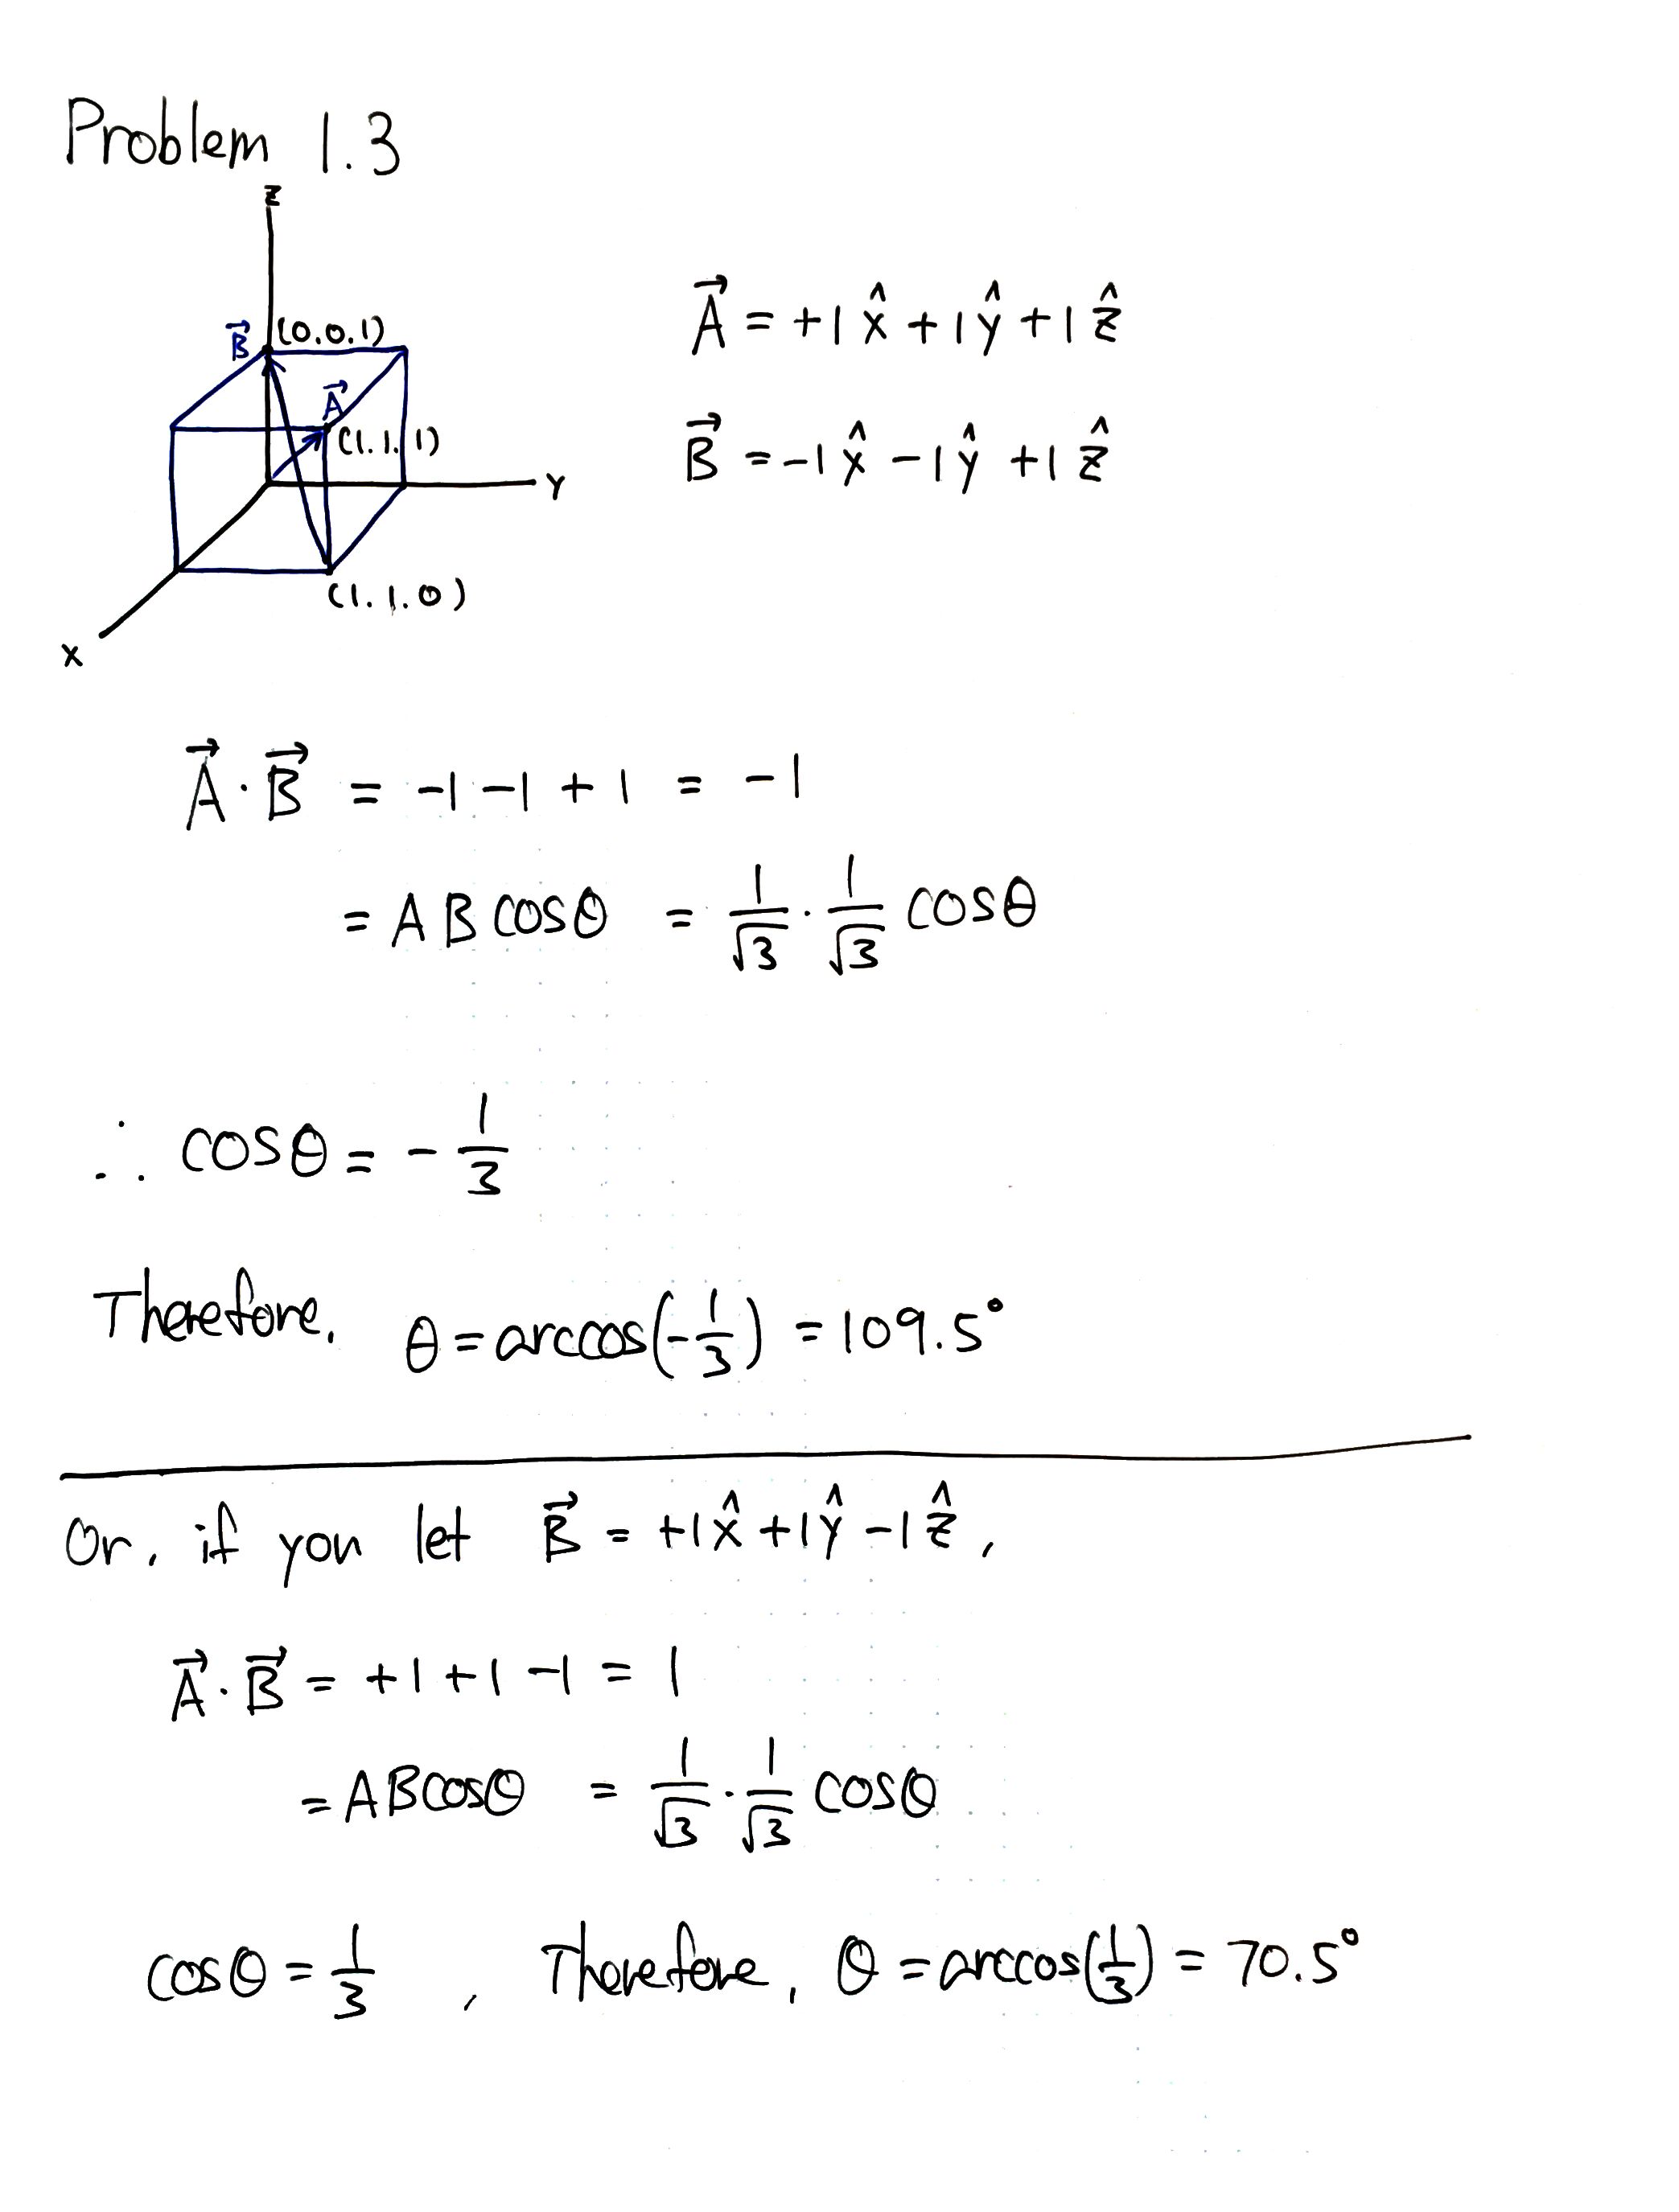 Problem 1.3
z
B⃗ (0.0.1)
A⃗
(1.1.1)
Y
(1.1.0)
x
A⃗ = +1 x̂ + 1 ŷ + 1 ẑ
B⃗ = -1 x̂ - 1 ŷ + 1 ẑ
A⃗ · B⃗ = -1 -1 + 1 = -1
= AB cosθ = 1/√3 · 1/√3 cosθ
∴ cosθ = - 1/3
Therefore, θ = arccos(-1/3) = 109.5°
Or, if you let B⃗ = +1 x̂ + 1 ŷ - 1 ẑ ,
A⃗ · B⃗ = +1 + 1 - 1 = 1
= AB cosθ = 1/√3 · 1/√3 cosθ
cosθ = 1/3 , Therefore, θ = arccos(1/3) = 70.5°